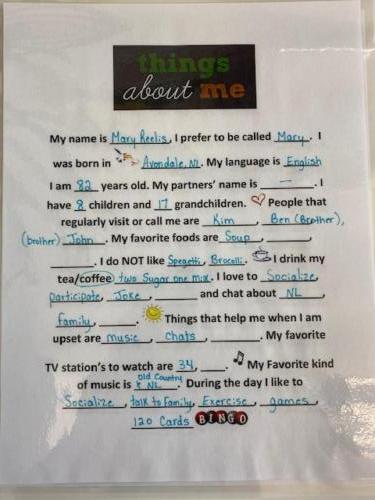 things
about me
My name is Mary Reelis, I prefer to be called Mary. I
was born in Avondale, NL. My language is English
I am 82 years old. My partners' name is —. I
have 8 children and 17 grandchildren. People that
regularly visit or call me are Kim, Ben (Brother),
(brother) John. My favorite foods are Soup, ,
. I do NOT like Spegetti, Brocolli. I drink my
tea/coffee two Sugar one milk. I love to Socialize,
participate, Joke, and chat about NL,
family, . Things that help me when I am
upset are music, Chats, . My favorite
TV station's to watch are 34, . My Favorite kind
of music is Old Country & NL. During the day I like to
Socialize, talk to Family, Exercise, games,
120 Cards BINGO